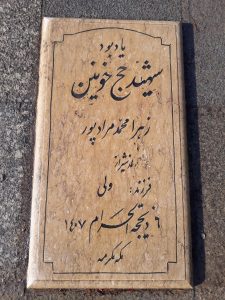 یادبود
شهید حج خونین
زهرا محمد مرادپور
فرزند: ولی
۶ ذیحجه الحرام ۱۴۰۷
مکه مکرمه